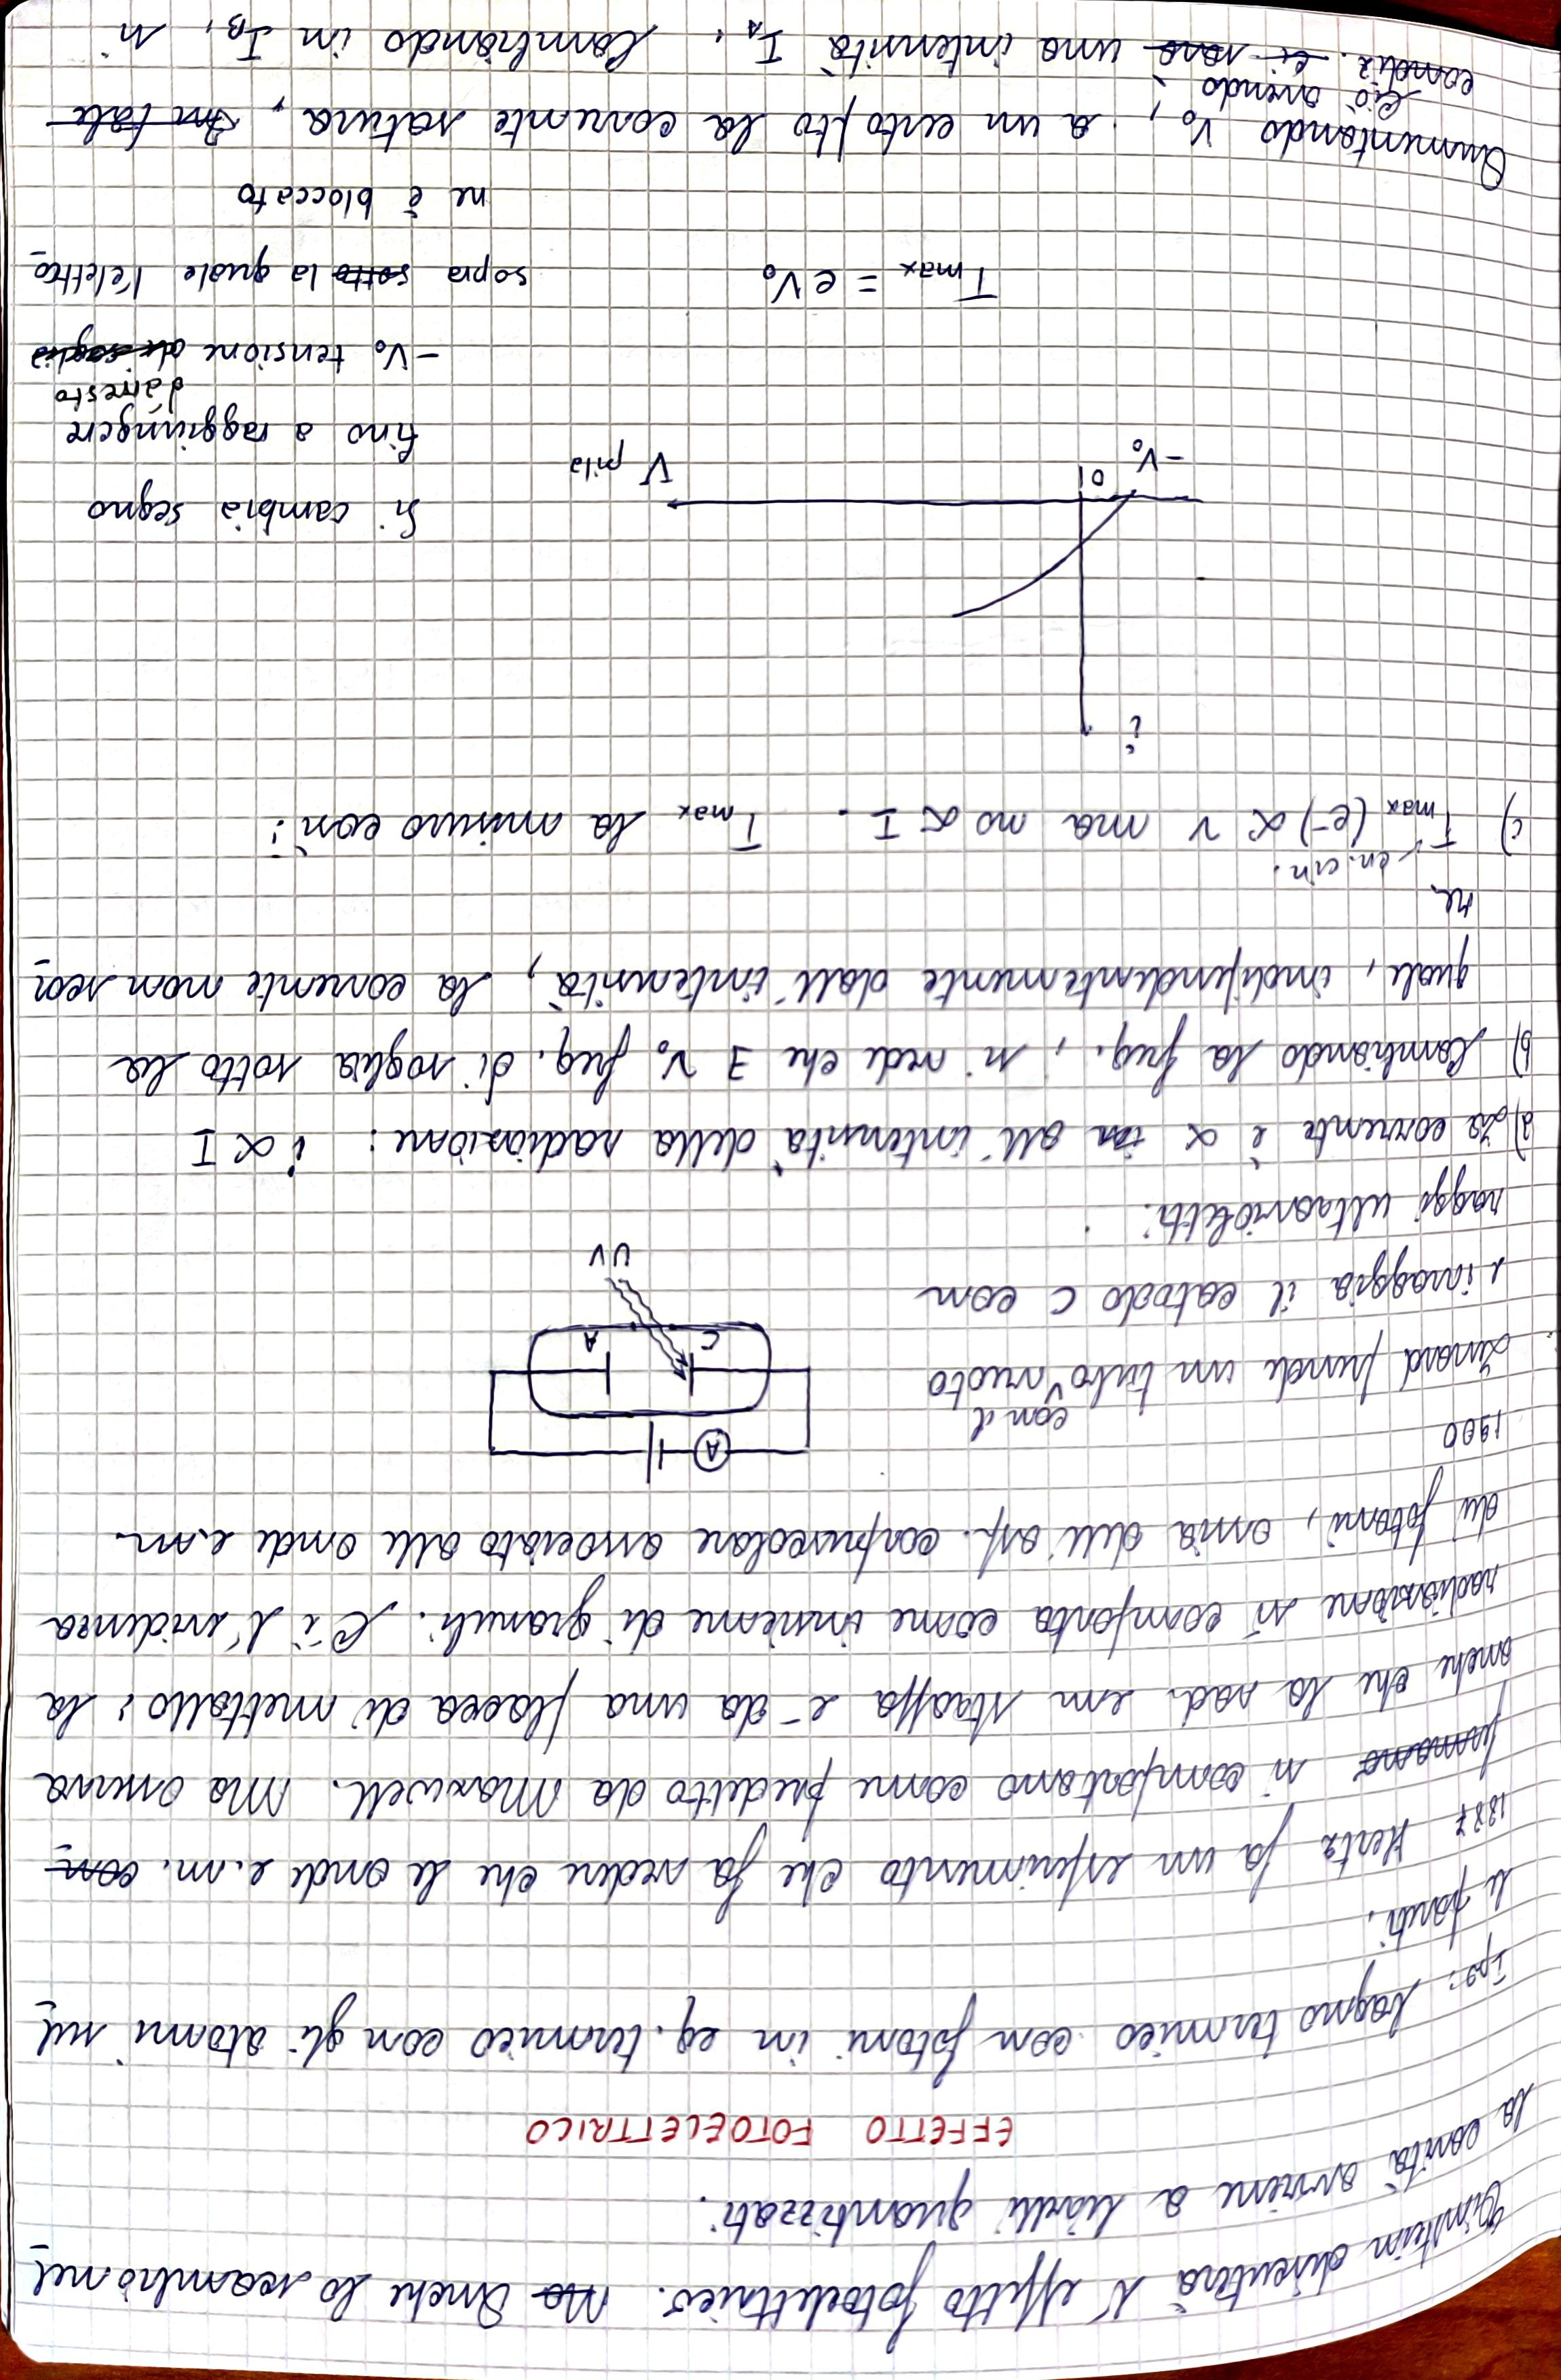 Einstein discuterà l'effetto fotoelettrico. Ma Anche lo scambio nel
la cavità avviene a livelli quantizzati.
EFFETTO FOTOELETTRICO
Ipo: bagno termico con fotoni in eq. termico con gli atomi sul
le pareti.
1887 Hertz fa un esperimento che fa vedere che le onde e.m. com
possono si comportano come predetto da Maxwell. Ma osserva
anche che la rad. em strappa e⁻ da una placca di mettallo: la
radiazione si comporta come insieme di granuli. C'è l'evidenza
dei fotoni, ossia dell'asp. corpuscolare associato alle onde e.m.
1900
Lenard prende un tubo con il vuoto
e irraggia il catodo C con
raggi ultravioletti.
A
C A
UV
a) La corrente è ∝ in all'intensità della radiazione: i ∝ I
b) Cambiando la freq., si vede che ∃ ν₀ freq. di soglia sotto la
quale, indipendentemente dall'intensità, la corrente non scor
re.
en. cin.
c) T max (e⁻) ∝ ν ma no ∝ I. T max la misuro così:
i
-V₀ 0 V pila
Si cambia segno
fino a raggiungere
-V₀ tensione di soglia d'arresto
sopra sotto la quale l'eletto
ne è bloccato
T max = eV₀
Aumentando V₀, a un certo pto la corrente satura, In tale
condiz. ci sono ciò avendo una intensità I_A. Cambiando in I_B, si